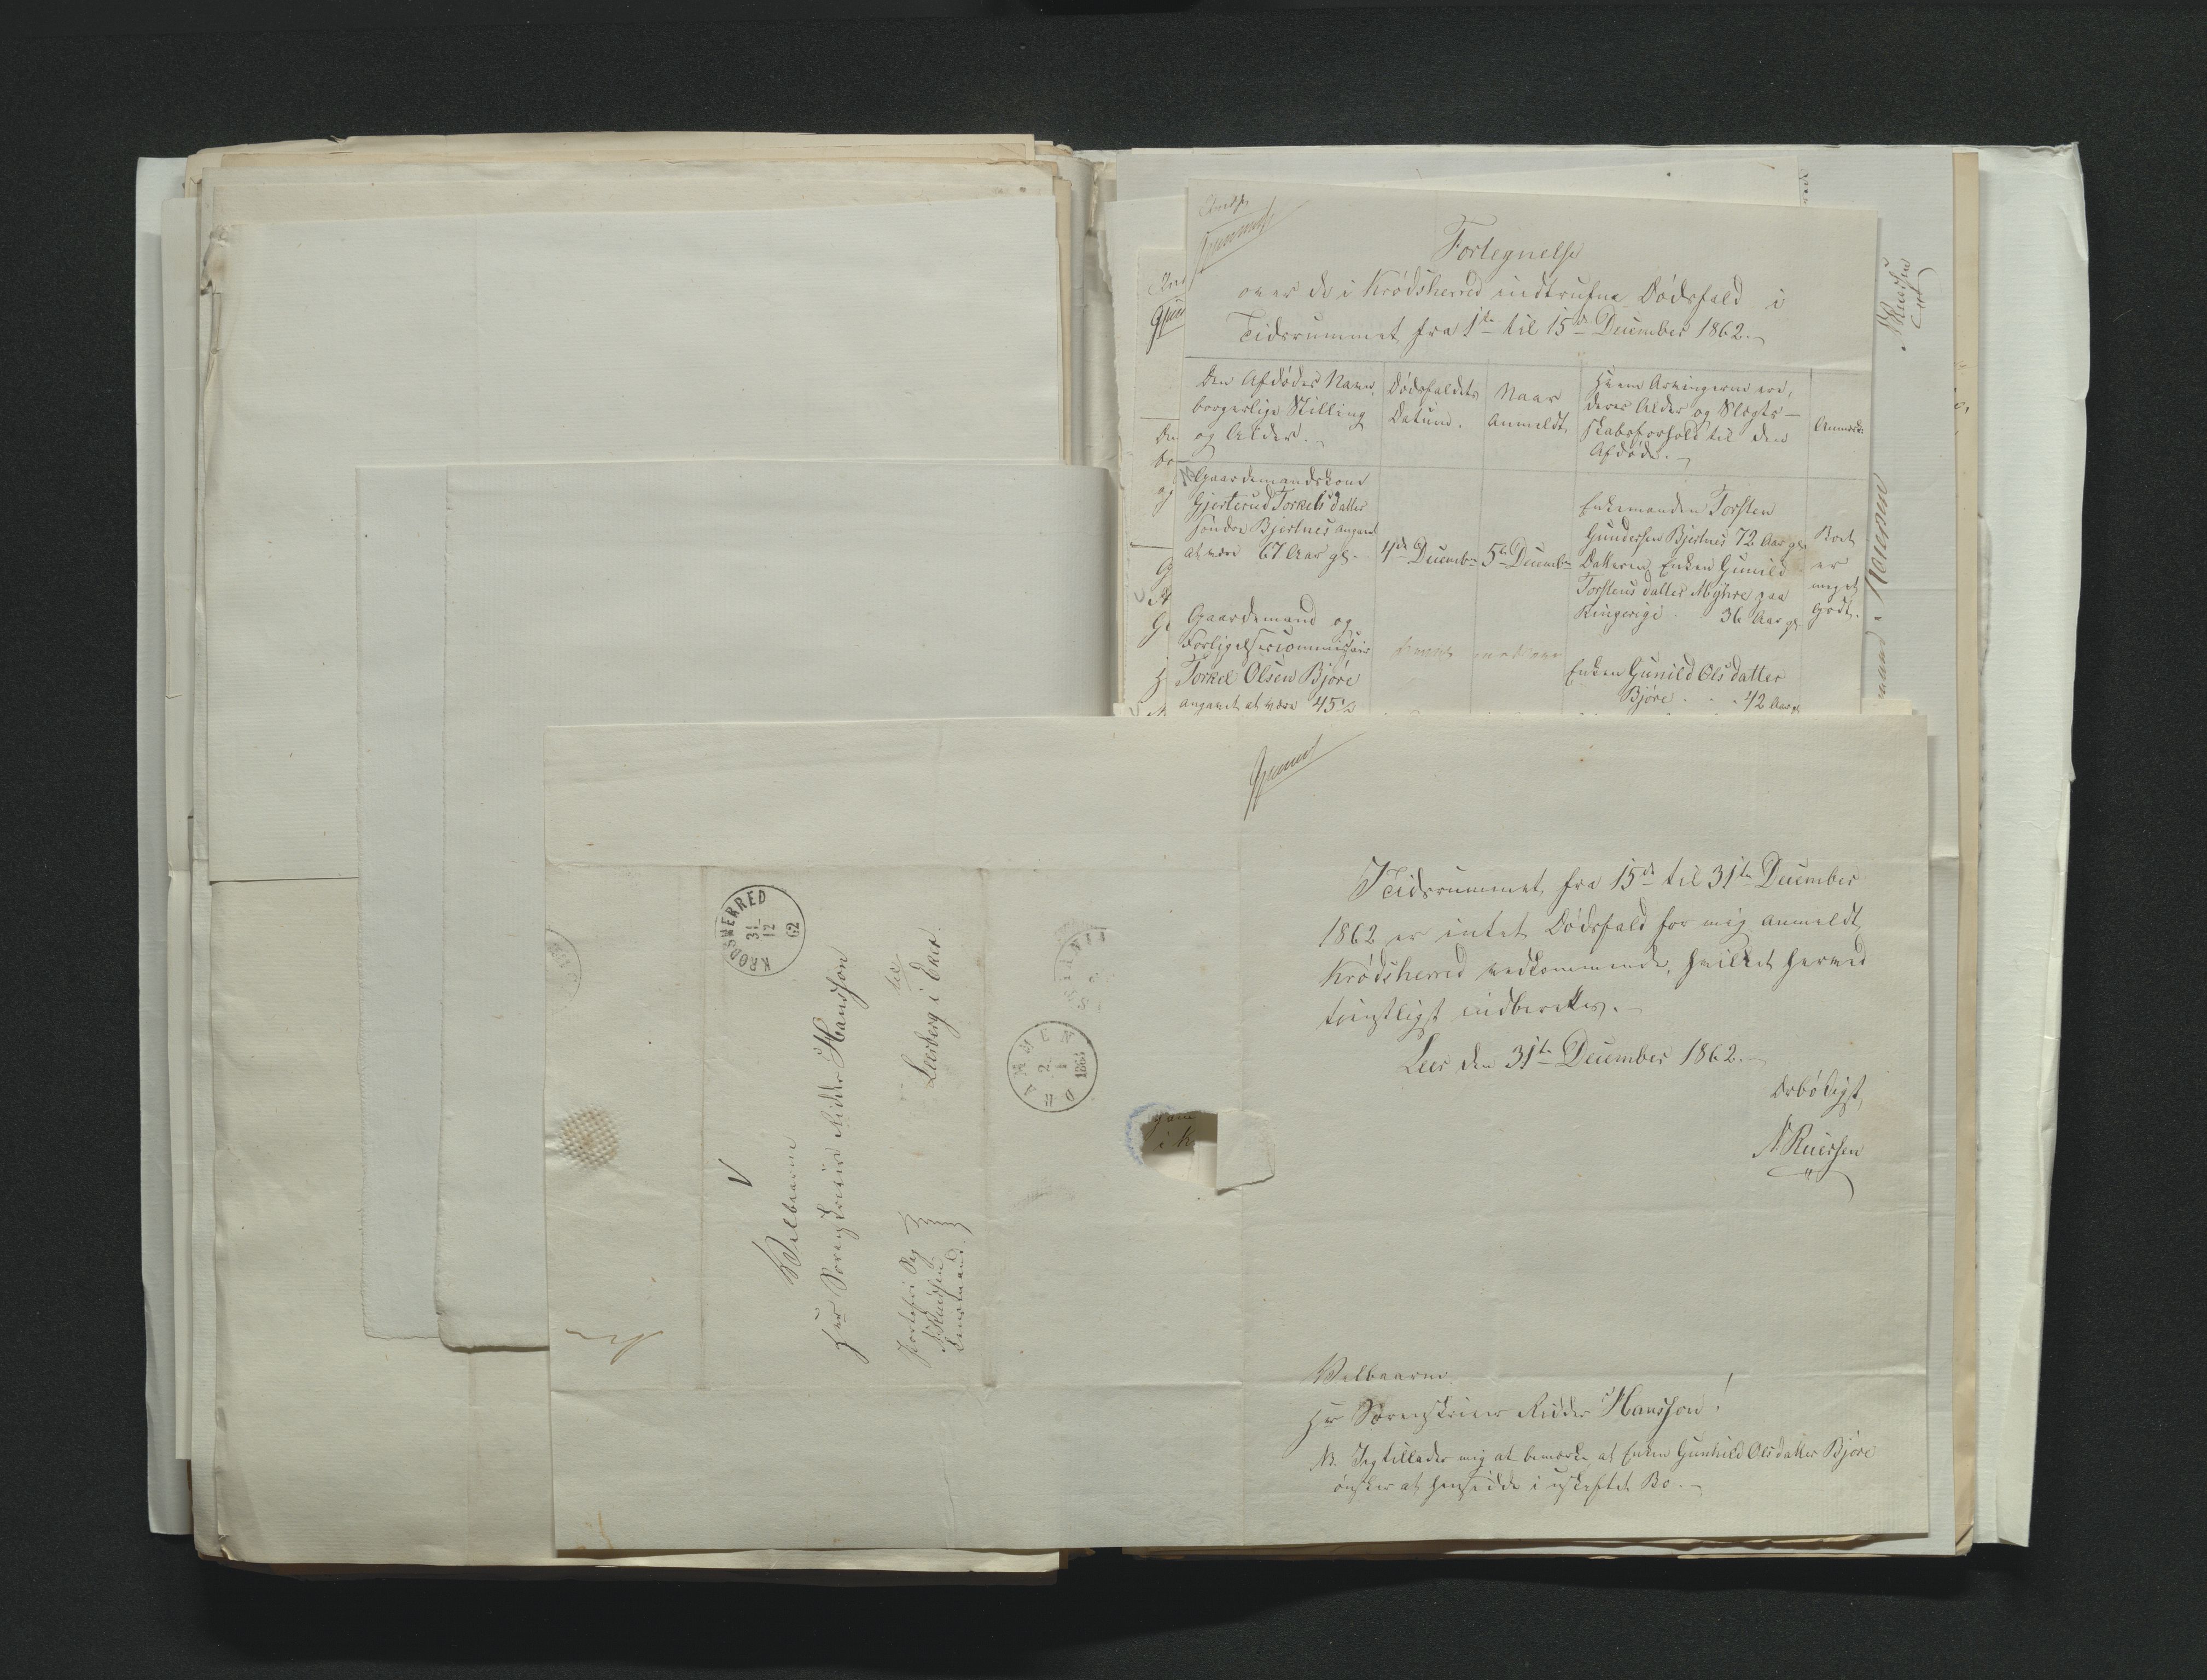 Fortegnelse
over de i Krødsherred indtrufne Dødsfald i
Tidsrummet fra 1ste til 15de December 1862.
Den Afdødes Navn,
borgerlige Stilling
og Alder.
Dødsfaldets
Datum.
Naar
Anmeldt
Hvem Arvingerne ere,
deres Alder og Slægt-
skabsforhold til den
Afdøde.
Gaardmandskone
Gjerterud Torkelsdatter
søndre Bjertnes angivet
at være 67 Aar gl.
4de Decembr
5te Decembr
Enkemanden Torsten
Gundersen Bjertnes 72 Aar gl.
Datteren Enken Gunild
Torstensdatter Myhre paa
Ringerige 36 Aar gl.
Boet
er
meget
godt.
Gaardmand og
Forligelsescommissair
Torkel Olsen Bjøre
angivet at være 45½
Enken Gunild Olsdatter
Bjøre . . 42 Aar gl.
I Tidsrummet fra 15de til 31te December
1862 er intet Dødsfald for mig anmeldt
Krødsherred vedkommende, hvilket herved
tjenstligst indberettes.
Leer den 31te December 1862.
Ærbødigst,
N. Ruersen
Velbaarne
Hr Sorenskriver Ridder Hansson!
NB. Jeg tillader mig at bemærke, at Enken Gunhild Olsdatter Bjøre
ønsker at hensidde i uskiftet Bo.
KRØDSHERRED
31
12
62
Velbaarne
Herr Sorenskriver Ridder Hansson
Leerberg i Eker.
Portofri Sag
N. Ruersen
Lensmand.
DRAMMEN
2
1
1863